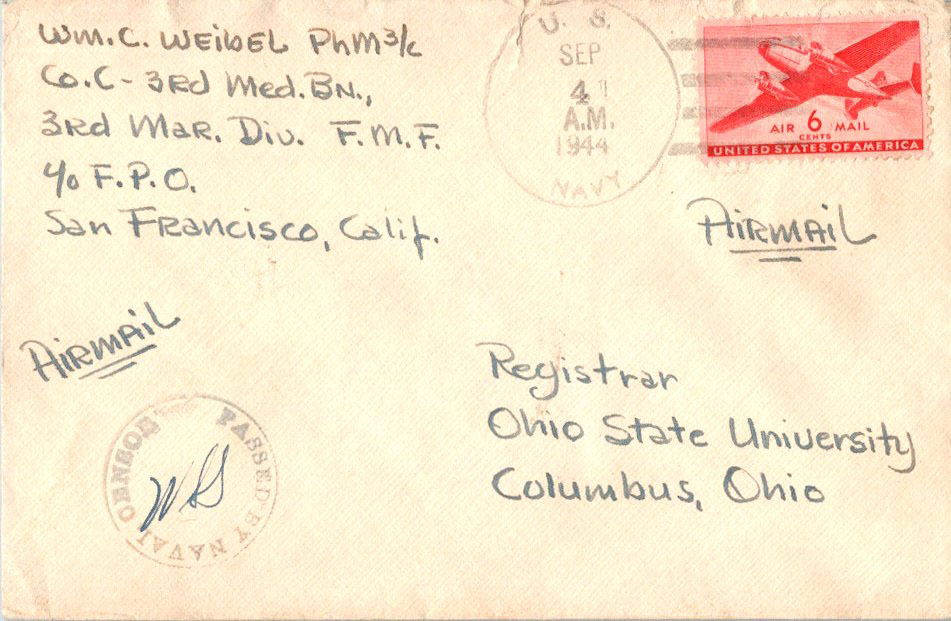 Wm. C. WEIBEL PhM 3/c
Co. C - 3rd Med. Bn.,
3rd Mar. Div. F.M.F.
c/o F.P.O.
San Francisco, Calif.
U. S.
SEP
4
A.M.
1944
NAVY
AIR 6 MAIL
CENTS
UNITED STATES OF AMERICA
AIRMAIL
AIRMAIL
PASSED BY NAVAL CENSOR
Registrar
Ohio State University
Columbus, Ohio